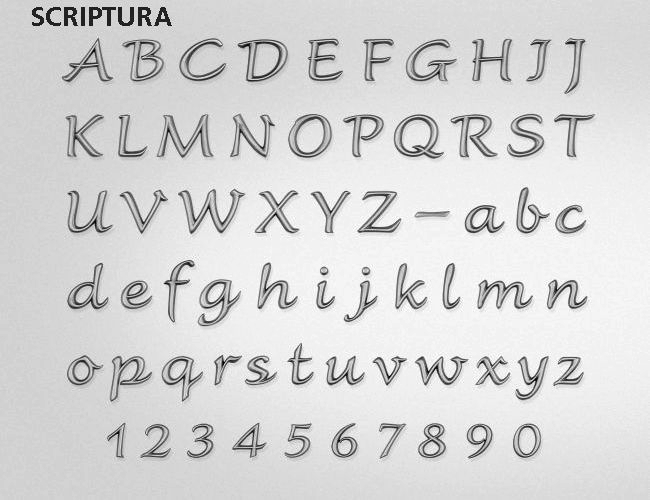 SCRIPTURA
A B C D E F G H I J
K L M N O P Q R S T
U V W X Y Z – a b c
d e f g h i j k l m n
o p q r s t u v w x y z
1 2 3 4 5 6 7 8 9 0